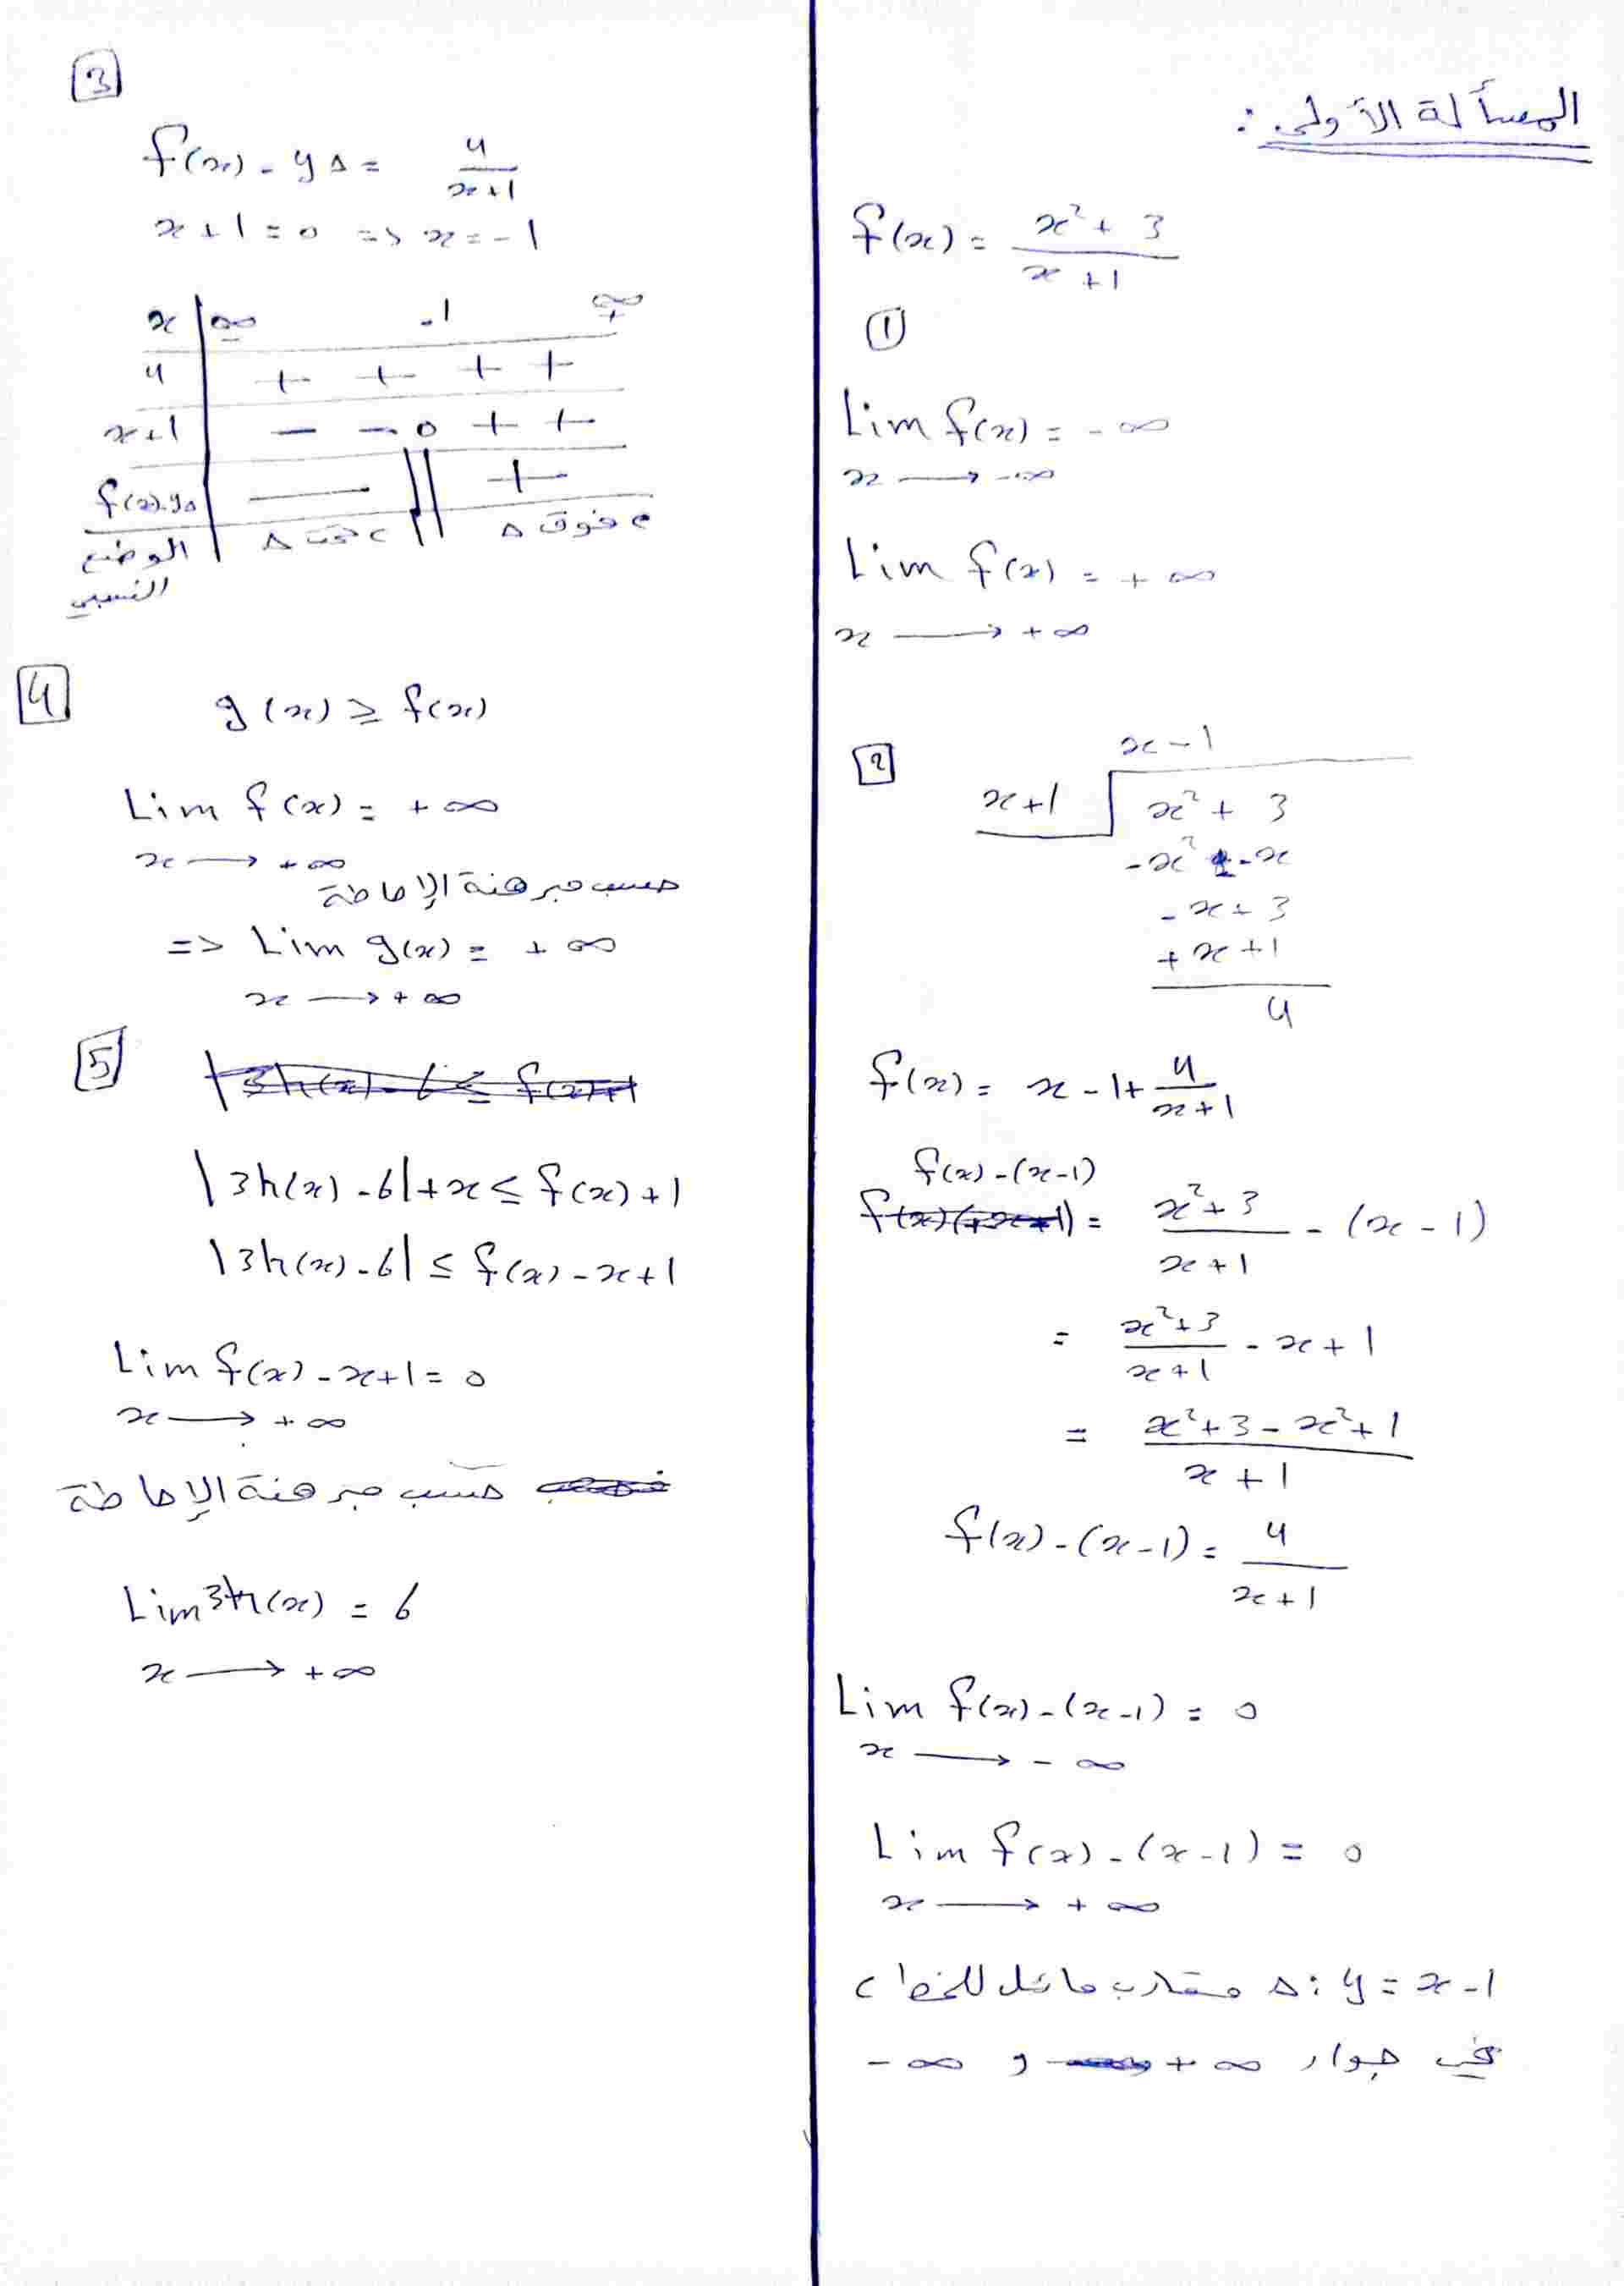 المسألة الأولى :
f(x) = (x² + 3)/(x + 1)
①
Lim f(x) = - ∞
x → -∞
Lim f(x) = + ∞
x → + ∞
2
x - 1
x+1 x² + 3
-x² - x
- x + 3
+ x + 1
4
f(x) = x - 1 + 4/(x+1)
f(x) - (x-1)
= (x² + 3)/(x + 1) - (x - 1)
= (x² + 3)/(x + 1) - x + 1
= (x² + 3 - x² + 1)/(x + 1)
f(x) - (x - 1) = 4/(x + 1)
Lim f(x) - (x - 1) = 0
x → - ∞
Lim f(x) - (x - 1) = 0
x → + ∞
Δ: y = x - 1 مقارب مائل للخط C
في جوار + ∞ و - ∞
3
f(x) - yΔ = 4/(x+1)
x + 1 = 0 => x = -1
x -∞ -1 +∞
4 + + + +
x+1 - - 0 + +
f(x)-yΔ - || +
الوضع النسبي C تحت Δ || C فوق Δ
4
g(x) ≥ f(x)
Lim f(x) = + ∞
x → + ∞
حسب مبرهنة الإحاطة
=> Lim g(x) = + ∞
x → + ∞
5
|3h(x) - 6| + x ≤ f(x) + 1
|3h(x) - 6| ≤ f(x) - x + 1
Lim f(x) - x + 1 = 0
x → + ∞
حسب مبرهنة الإحاطة
Lim 3h(x) = 6
x → + ∞